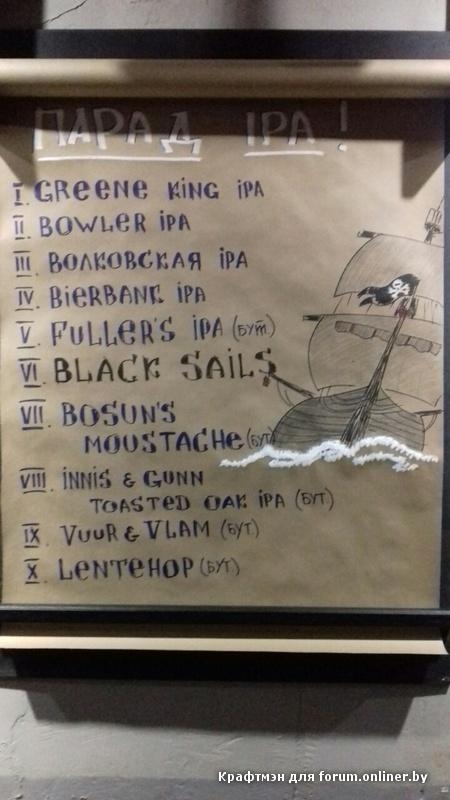 ПАРАД IPA!
I. GREENE KING IPA
II. BOWLER IPA
III. ВОЛКОВСКАЯ IPA
IV. BIERBANK IPA
V. FULLER'S IPA (БУТ)
VI. BLACK SAILS
VII. BOSUN'S
MOUSTACHE (БУТ)
VIII. INNIS & GUNN
TOASTED OAK IPA (БУТ)
IX. VUUR & VLAM (БУТ)
X. LENTEHOP (БУТ)
Крафтмэн для forum.onliner.by